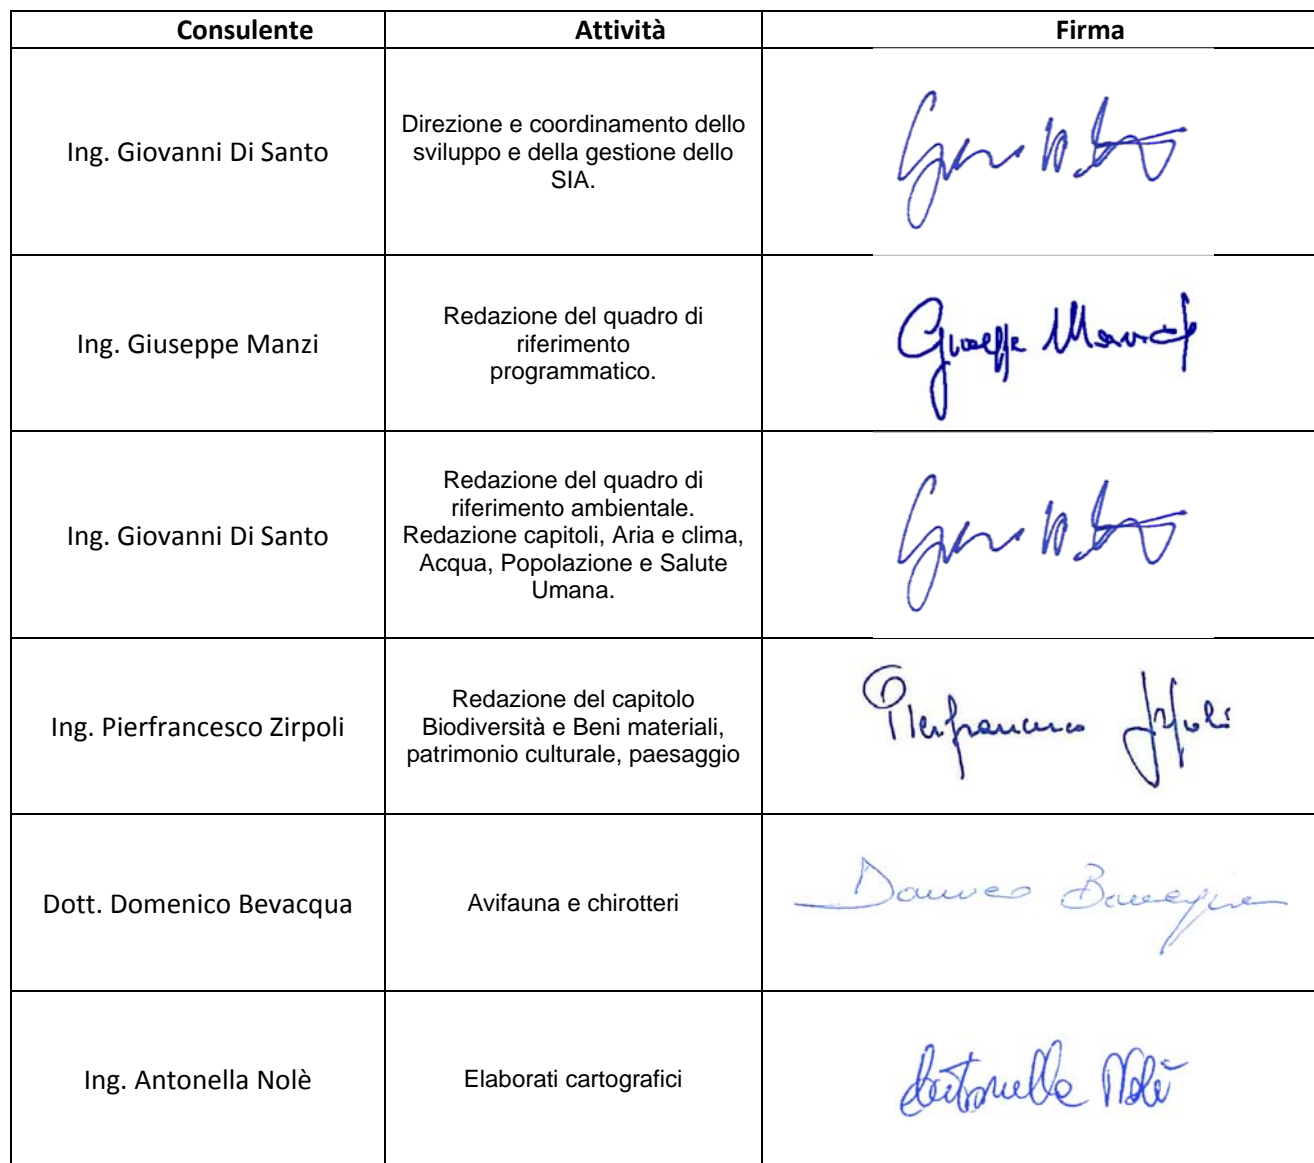 Consulente Attività Firma
Ing. Giovanni Di Santo
Direzione e coordinamento dello
sviluppo e della gestione dello
SIA.
Ing. Giuseppe Manzi
Redazione del quadro di
riferimento
programmatico.
Giuseppe Manzi
Ing. Giovanni Di Santo
Redazione del quadro di
riferimento ambientale.
Redazione capitoli, Aria e clima,
Acqua, Popolazione e Salute
Umana.
Ing. Pierfrancesco Zirpoli
Redazione del capitolo
Biodiversità e Beni materiali,
patrimonio culturale, paesaggio
Pierfrancesco Zirpoli
Dott. Domenico Bevacqua
Avifauna e chirotteri
Domenico Bevacqua
Ing. Antonella Nolè
Elaborati cartografici
Antonella Nolè